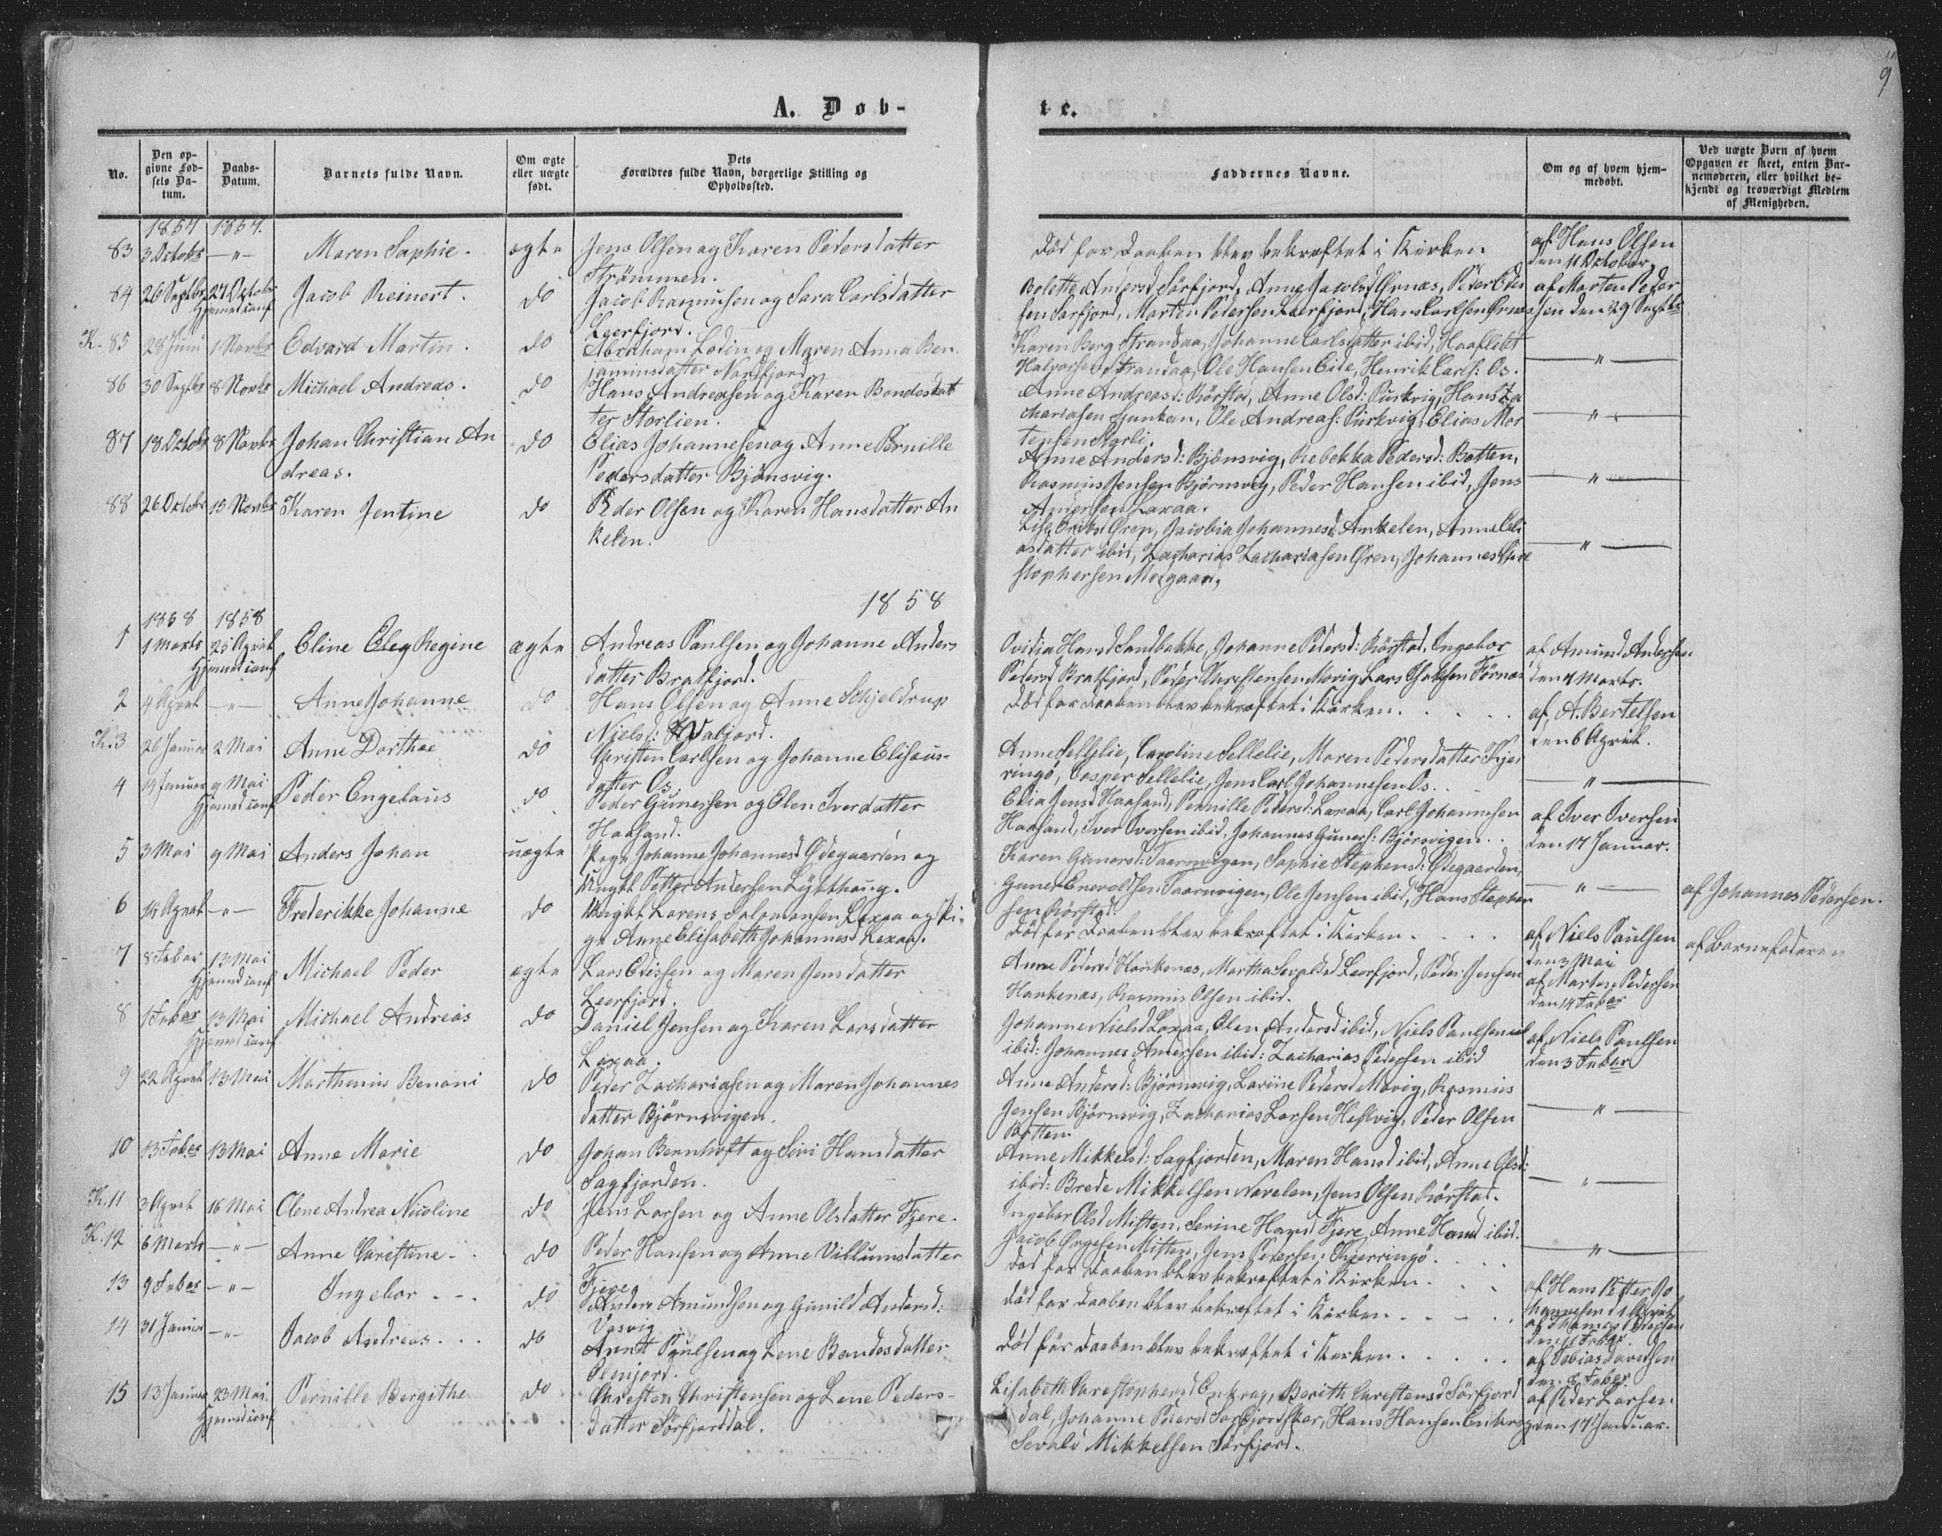 9
A. Døb-
te.
No.
Den opgivne Fødsels Datum.
Daabs-Datum.
Barnets fulde Navn.
Om ægte eller uægte født.
Dets Forældres fulde Navn, borgerlige Stilling og Opholdssted.
Faddernes Navne.
Om og af hvem hjemmedøbt.
Ved uægte Børn af hvem Opgaven er skeet, enten Barnemoderen, eller hvilket bekjendt og troværdigt Medlem af Menigheden.
1857 1857.
83 3 Octobr —"— Maren Sophie. ægte Jens Olsen og Karen Pedersdatter
Strømmen.
Død før Daaben blev bekræftet i Kirken
af Hans Olsen
den 11 October
84 26 Septbr 27 October Jacob Reinert. do Jacob Rasmusen og Sara Carlsdatter
Hjemed conf
Leerfjord.
Bolette Andersd Sørfjord, Anne Jacobsd Ørnæs, Peder
sen Sørfjord, Morten Pedersen Leerfjord, Hans Carlsen Ørnæs
af Morten Peder
sen den 29 Septbr
K. 85 28 Juni 1 Novbr Edvard Martin. do Abraham Lodin og Maren Anna Ben
jaminsdatter Nordfjord
Karen Berg Strandaa, Johanne Carlsdatter ibid,
Halvorsen Strandaa, Ole Hansen Eide, Henrik Carls: Os.
—"—
86 30 Septbr 8 Novbr Michael Andreas. do Hans Andreasen og Karen Bondesdat
ter Storlien.
Anne Andreasd: Rørstad, Anne Olsd: Purkvig, Hans Za
chariasen Sjunken, Ole Andreas: Purkvig, Elias Mor
tensen Storli.
—"—
87 18 Octobr 8 Novbr Johan Christian An
dreas.
do Elias Johannesen og Anne Pernille
Pedersdatter Bjønsvig.
Anne Andersd: Bjønsvig, Rebekka Pedersd: Botten,
Rasmus Jensen Bjørnsvig, Peder Hansen ibid, Jens
Andersen Laxaa.
—"—
88 26 Octobr 15 Novbr Karen Jentine do Peder Olsen og Karen Hansdatter An
kelen.
Øren, Jacobia Johannesd: Ankelen, Anne Eli
asdatter ibid, Zacharias Zachariasen Øren, Johannes Chri
stophersen Misgaar,
—"—
1858
1858 1858
1 1 Marts 25 April Eline Eleg Regine ægte Andreas Paulsen og Johanne Anders
Hjemed conf
datter Bratfjord.
Ovidia Hansd Sandbakke, Johanne Pedersd: Rørstad, Ingebor
Pedersd Bratfjord, Peder Christensen Movig, Lars Jakobsen Tørnæs
af Amund Andersen
den 4 Marts.
2 4 April —"— Anne Johanne do Hans Olsen og Anne Schjeldrup
Nielsd: Hvalfjord.
Død før Daaben blev bekræftet i Kirken.
af, A. Bertelsen
den 6 April.
K. 3 26 Januar 2 Mai Anne Dorthae do Christen Carlsen og Johanne Elisæus-
datter Os
Anne Jellelie, Caroline Jellelie, Maren Pedersdatter Kjer
ringø, Casper Jellelie, Jens Carl Johannesen Os.
—"—
4 14 Januar 9 Mai Peder Engelaus do Peder Gunersen og Elen Iverdatter
Hjemed conf
Haasand.
Edia Jensd Haasand, Pernille Pedersd: Laxaa, Carl Johannesen
Haasand, Iver Iversen ibid, Johannes Guners: Bjørnvigen.
af Iver Iversen
den 17 Januar.
5 3 Mai 9 Mai Anders Johan uægte Pige Johanne Johannesd Ødegaarden og
Ungkl Petter Andersen Løkthaug.
Karen Gunersd: Taarnvigen, Sophie Stephensd: Ødegaarden,
Guner Enevoldsen Taarnvigen, Ole Jensen ibid, Hans Stephen
sen Rørstad.
—"—
af Johannes Pedersen.
6 14 April —"— Frederikke Johanne do Ungkl Lorens Salomonsen Laxaa og Pi-
ge Anne Elisabeth Johannesd Laxaa.
Død før Daaben blev bekræftet i Kirken.
af Niels Paulsen
den 3 Mai
af Barnefaderen
7 8 Febar 13 Mai Michael Peder ægte Lars Edissen og Maren Jensdatter
Hjemed conf
Leerfjord.
Anne Pedersd Honkenæs, Martha Sevaldsd Leerfjord, Peder Jensen
Hankenæs, Rasmus Olsen ibid.
af Morten Pedersen
den 14 Febar
8 1 Febar 13 Mai Michael Andreas do Daniel Jensen og Karen Larsdatter
Hjemed conf
Laxaa.
Johanne Nielsd Laxaa, Elen Andersd ibid, Niels Paulsen
ibid: Johannes Andersen ibid: Zacharias Pedersen ibid
af Niels Paulsen
den 3 Febar
9 22 April 13 Mai Marthinus Benoni do Peder Zachariasen og Maren Johannes
datter Bjørnsvigen.
Anne Andersd: Bjørnsvig, Lorine Pedersd Movig, Rasmus
Jensen Bjørnsvig, Zacharias Larsen Hestvig, Peder Olsen
Botten
—"—
10 13 Febar 13 Mai Anne Marie do Johan Bernhoft og Sivi Hansdatter
Sagfjorden.
Anne Mikkelsd: Sagfjorden, Maren Hansd ibid, Anne Olsd:
ibid: Brede Mikkelsen Navelen, Jens Olsen Rørstad.
—"—
K. 11 3 April 16 Mai Olene Andrea Nicoline do Jens Larsen og Anne Olsdatter Fjere.
Ingebor Olsd Misten, Serine Hansd Fjere, Anne Hansd ibid.
Jacob Misten, Jens Pedersen Kjerringø.
—"—
K. 12 6 Marts —"— Anne Christine do Peder Hansen og Anne Villumsdatter
Fjere
Død før Daaben blev bekræftet i Kirken.
af Hans Petter Jo
hannesen d 1 April
13 9 Febar —"— Ingebor do Anders Amundsen og Gunild Andersd:
Vasvig
Død før Daaben blev bekræftet i Kirken.
af Thomas
den 11 Febar
14 31 Januar —"— Jacob Andreas do Arent Paulsen og Lene Bondesdatter
Død før Daaben blev bekræftet i Kirken.
af Tobias Davidsen
den 8 Febar
15 13 Januar 23 Mai Pernille Bergithe do Christen Christensen og Lene Peders-
Hjemed conf
datter Sørfjorddal.
Lisabeth Christophersd Enkrog, Berith Christensd Sørfjord
dal, Johanne Pedersd Sørfjordskar, Hans Hansen Enkrog
Sevald Mikkelsen Sørfjord.
af Peder Larsen
den 17 Januar.